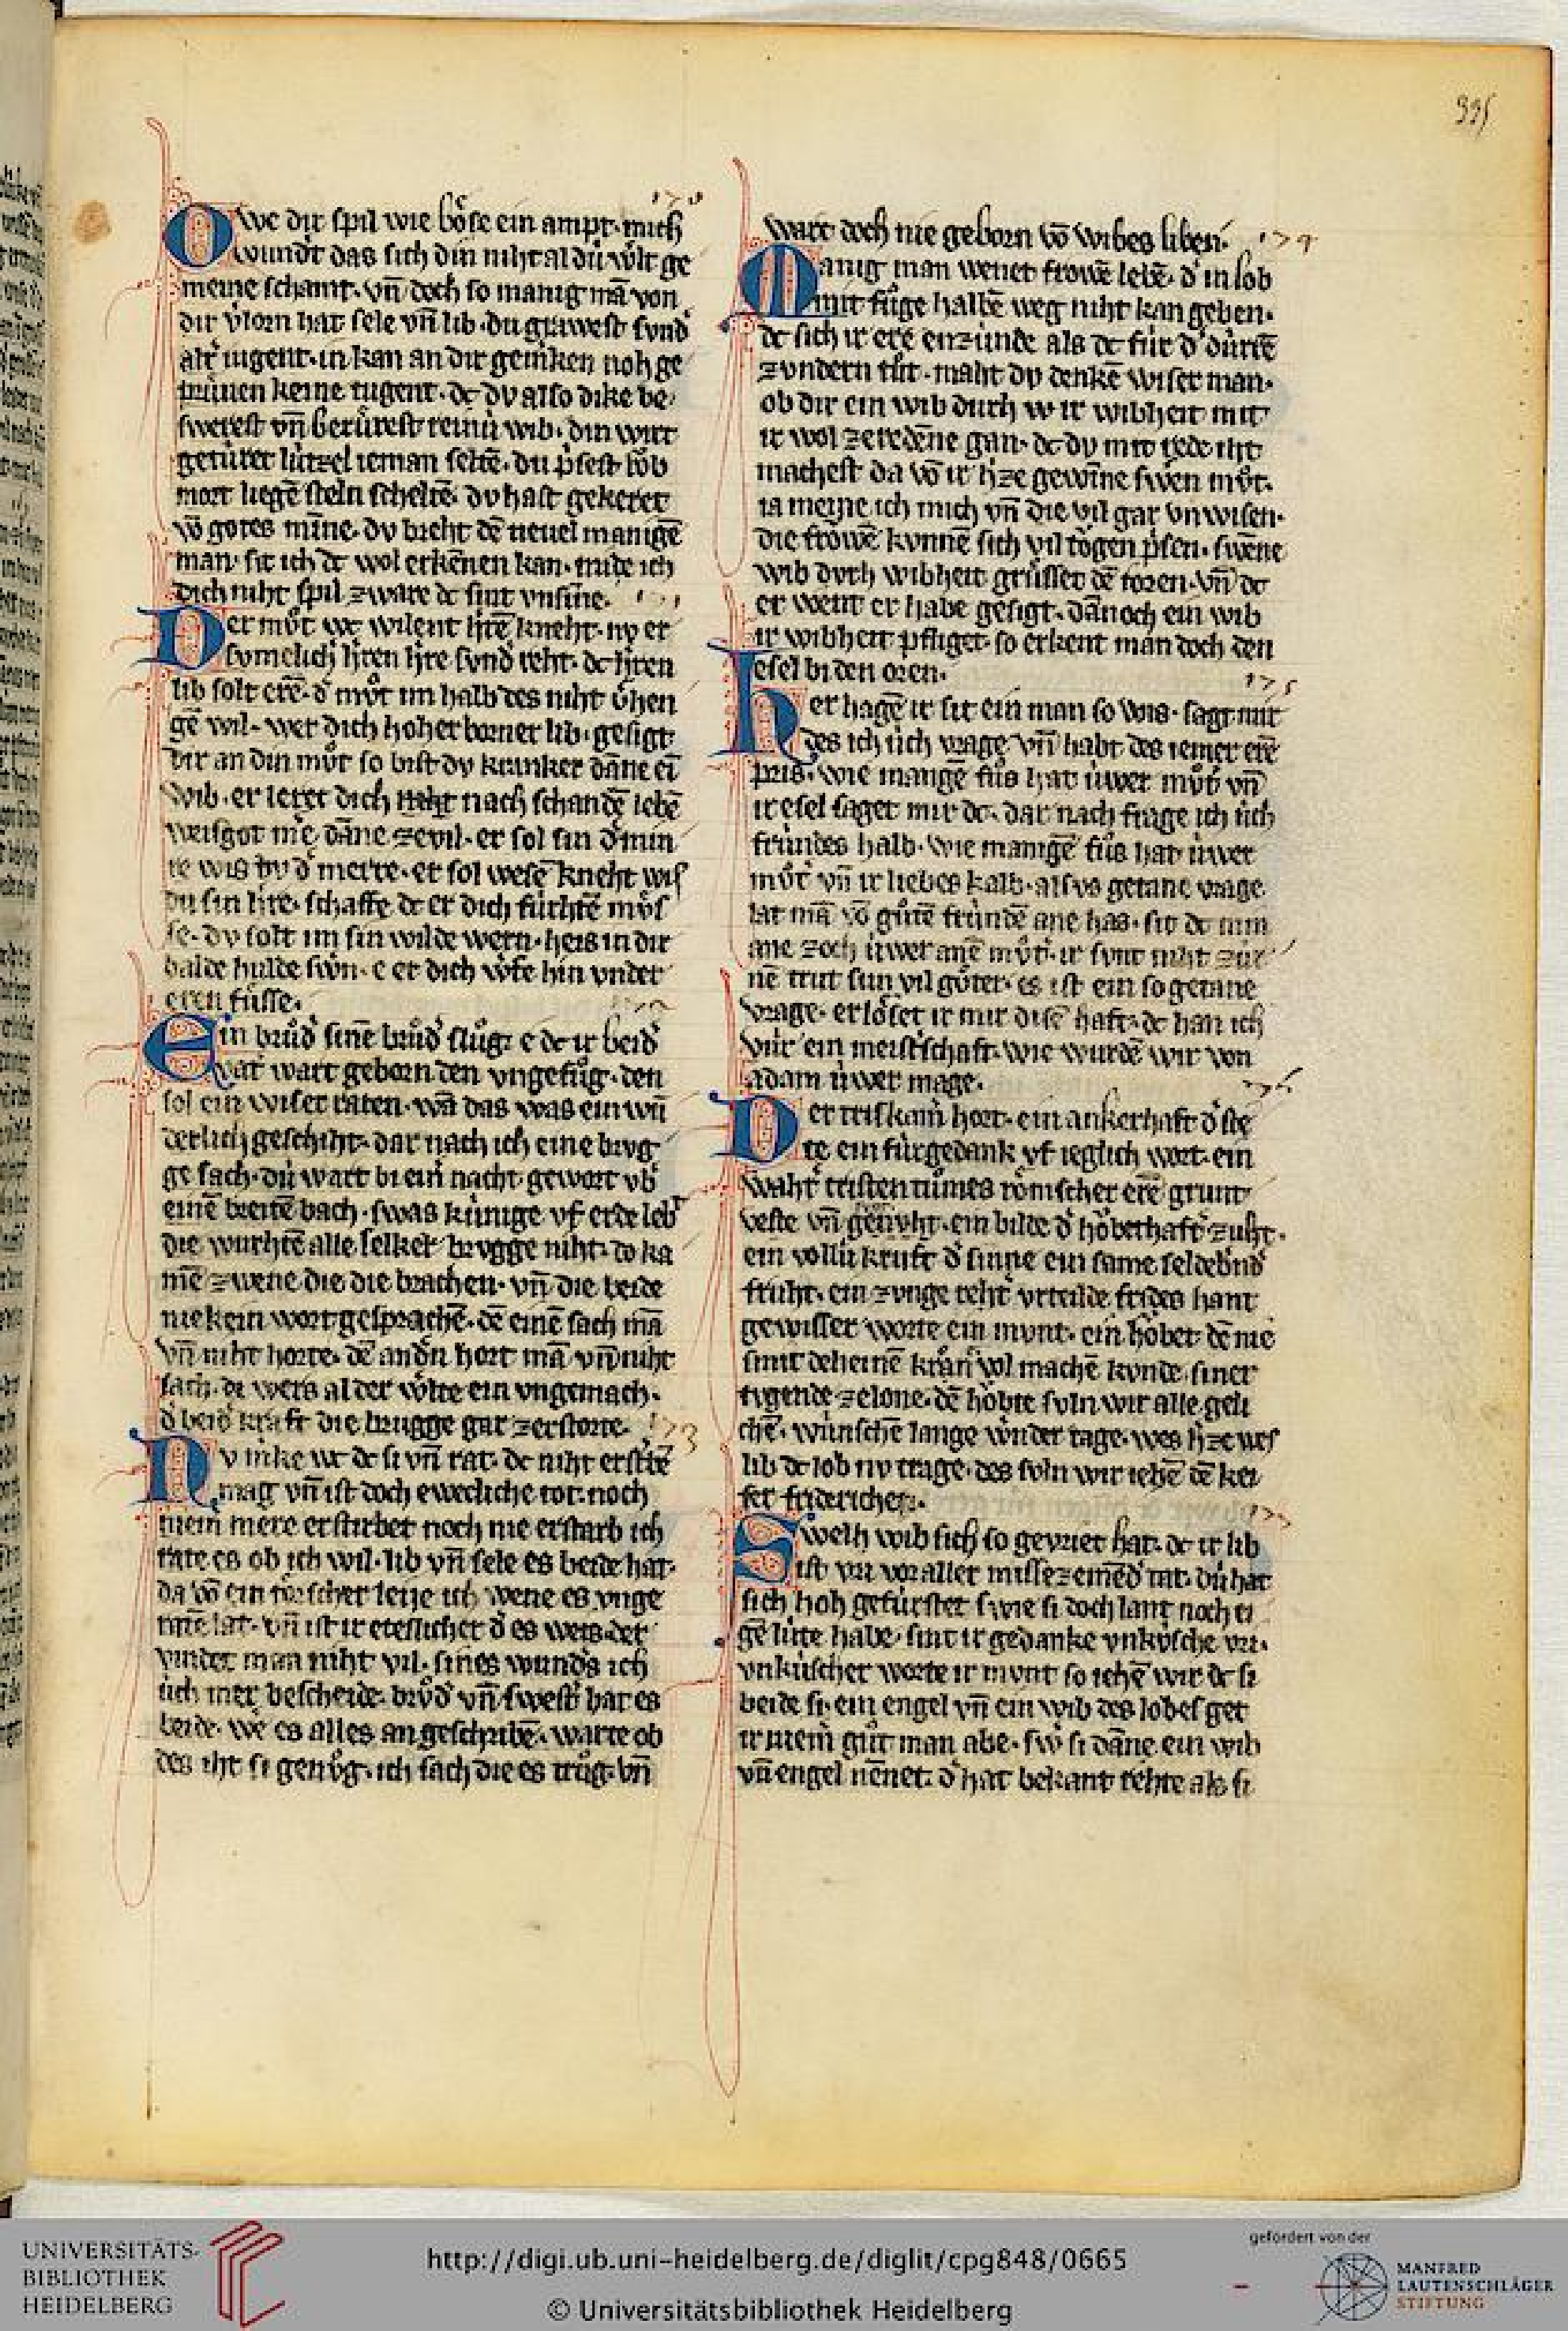 335
170
Owe dir spil wie bôse ein ampt· mich
wundt das sich din niht al dù wlt ge
meine schamt· vñ doch so manig mā von
dir vlorn hat sele vñ lib· du
alt iugent· in kan an dir gemken noh ge
pruuen keine tugent· dc dv also dike be
swerest vñ berůrest reinù wib· din wirt
getùret lùtzel ieman seltē· du pfest rôb
mort liegē steln scheltē· dv hast gekeret
vō gotes mīne· dv vieht dē tieuel manigē
man· sit ich dc wol erkēnen kan· mide ich
dich niht spil zware dc sint vnsīne·
171
Der můt wc wilent hrē kneht· nv er
svmelich hren hre svnd reht· dc hren
lib solt erē· d můt im halb des niht vhen
gē wil· wer dich hoher borner lib· gesigt
dir an din můt so bist dv kranker dāne eī
wib· er leret dich nach schandē lebē
weisgot nie dāne ze vil· er sol sin d min
re wis dv d merre· er sol wesē kneht wis
du sin hre· schaffe dc er dich fùrhtē mvs
se· dv solt im sin wilde wern· heis in dir
balde hulde swn· e er dich wfe hin vnder
eren fùsse·
172
Ein brůd sinē brůd slůg· e dc ir beid
vat wart geborn den vngefůg· den
sol ein wiser raten· wā das was ein wū
derlich geschiht· dar nach ich eine brvg
ge sach· dù wart bi ein nacht gewort vb
einē breitē bach· swas kùnige vf erde leb
die wurhtē alle selker brvgge niht· do ka
mē zwene die die brachen· vñ die beide
nie kein wort gesprachē· dē einē sach mā
vñ niht horte· dē andn hort mā vñ niht
sach· di wers al der wlte ein vngemach·
d beid kraft die brugge gar zerstorte·
173
Nv mke wc dc si vñ rat· dc niht erstbē
mag vñ ist doch ewecliche tot· noch
niem mere erstirbet noch nie erstarb ich
rate es ob ich wil· lib vñ sele es beide hat·
da vō ein törscher leije ich wene es vnge
ratē lat· vñ ist ir eteslicher d es weis· der
vindet man niht vil· sines wunds ich
ùch mer bescheide· brůd vñ swest hat es
beide· we es alles an geschribē· warte ob
des iht si genůg· ich sach die es trůg· vñ
wart doch nie geborn vō wibes liben·
174
Manig man wenet frowē lebē· d in lob
mit fůge halbē weg niht kan geben·
dc sich ir ere enzùnde als dc fùr d dùrrē
zvndern tůt· maht dv denkē wiser man·
ob dir ein wib durh ir wibheit mit
ir wol ze redēne gan· dc dv mit rede iht
machest da vō ir hze gewīne swen můt·
ia meine ich mich vñ die vil gar vnwisen·
die frowē kvnnē sich vil tôgen psen· swēne
wib dvrh wibheit grùsset dē toren· vñ dc
er went er habe gesigt· dānoch ein wib
ir wibheit pfliget· so erkent man doch den
esel bi den oren·
175
Her hagē ir sit ein man so wis· sagt mir
des ich ùch vrage vñ habt des iemer erē
pris· wie mangē fůs hat ùwer můt vñ
ir esel saget mir dc· dar nach frage ich ùch
frùndes halb· wie manigē fůs hat ùwer
můt vñ ir liebes kalb· alsvs getane vrage
lat mā vō gůtē frùndē ane has· sit dc min
ane zoch ùwer anē můt· ir svnt niht zùr
nē trut sun vil gůter· es ist ein so getane
vrage· erlôset ir mir disē haft· dc han ich
vùr ein meistschaft· wie wurdē wir von
adam ùwer mage·
176
Der triskam hort· ein ankerhaft d ste
te ein fùrgedank vf ieglich wort· ein
waht cristentůmes römscher erē grunt
veste vñ genvht· ein bilde d hôbethaft zuht·
ein vollù kruft d sinne ein same seldebnd
fruht· ein zvnge reht vrteilde frides hant
gewisser worte ein mvnt· ein hôbet dē nie
smit deheinē kran wol machē kvnde· siner
tvgende ze lone· dē hôbte svln wir alle geli
chē· wùnschē lange wnder tage· wes hze wes
lib dc lob nv trage· des svln wir iehē dē kei
ser friderichen·
177
Swelh wib sich so gevriet hat· dc ir lib
ist vri vor aller missezemēd tat· dù hat
sich hoh gefùrstet swie si doch lant noch ei
gē lùte habe· sint ir gedanke vnkùsche vri·
vnkùscher worte ir mvnt so iehē wir dc si
beide si· ein engel vñ ein wib des lobes get
ir niem gůt man abe· sw si dāne ein wib
vñ engel nēnet· d hat bekant rehte als si
UNIVERSITÄTS-
BIBLIOTHEK
HEIDELBERG
http://digi.ub.uni-heidelberg.de/diglit/cpg848/0665
© Universitätsbibliothek Heidelberg
gefördert von der
MANFRED
LAUTENSCHLÄGER
STIFTUNG